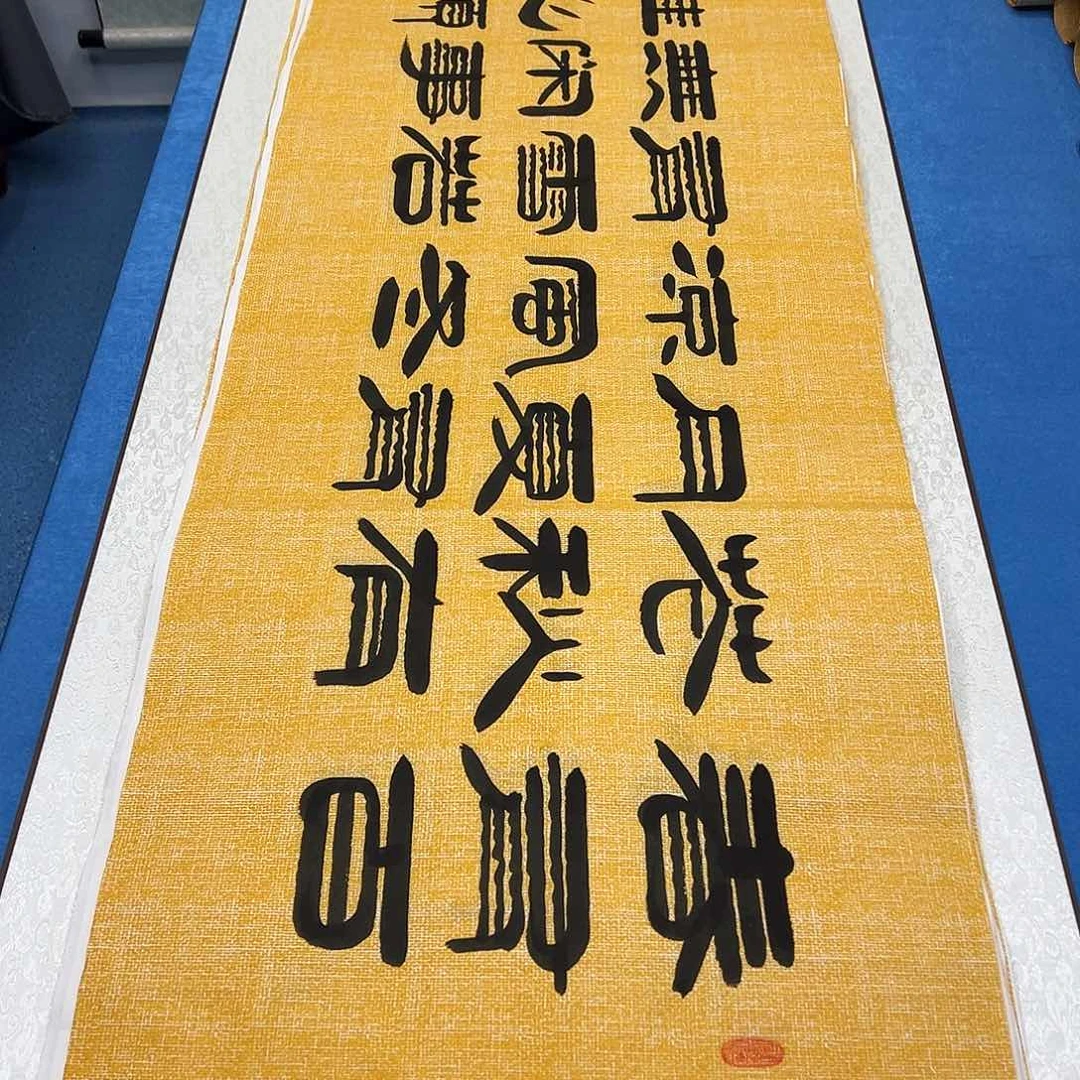 春有百
花秋有
月夏有
涼風冬
有雪若
無闲事